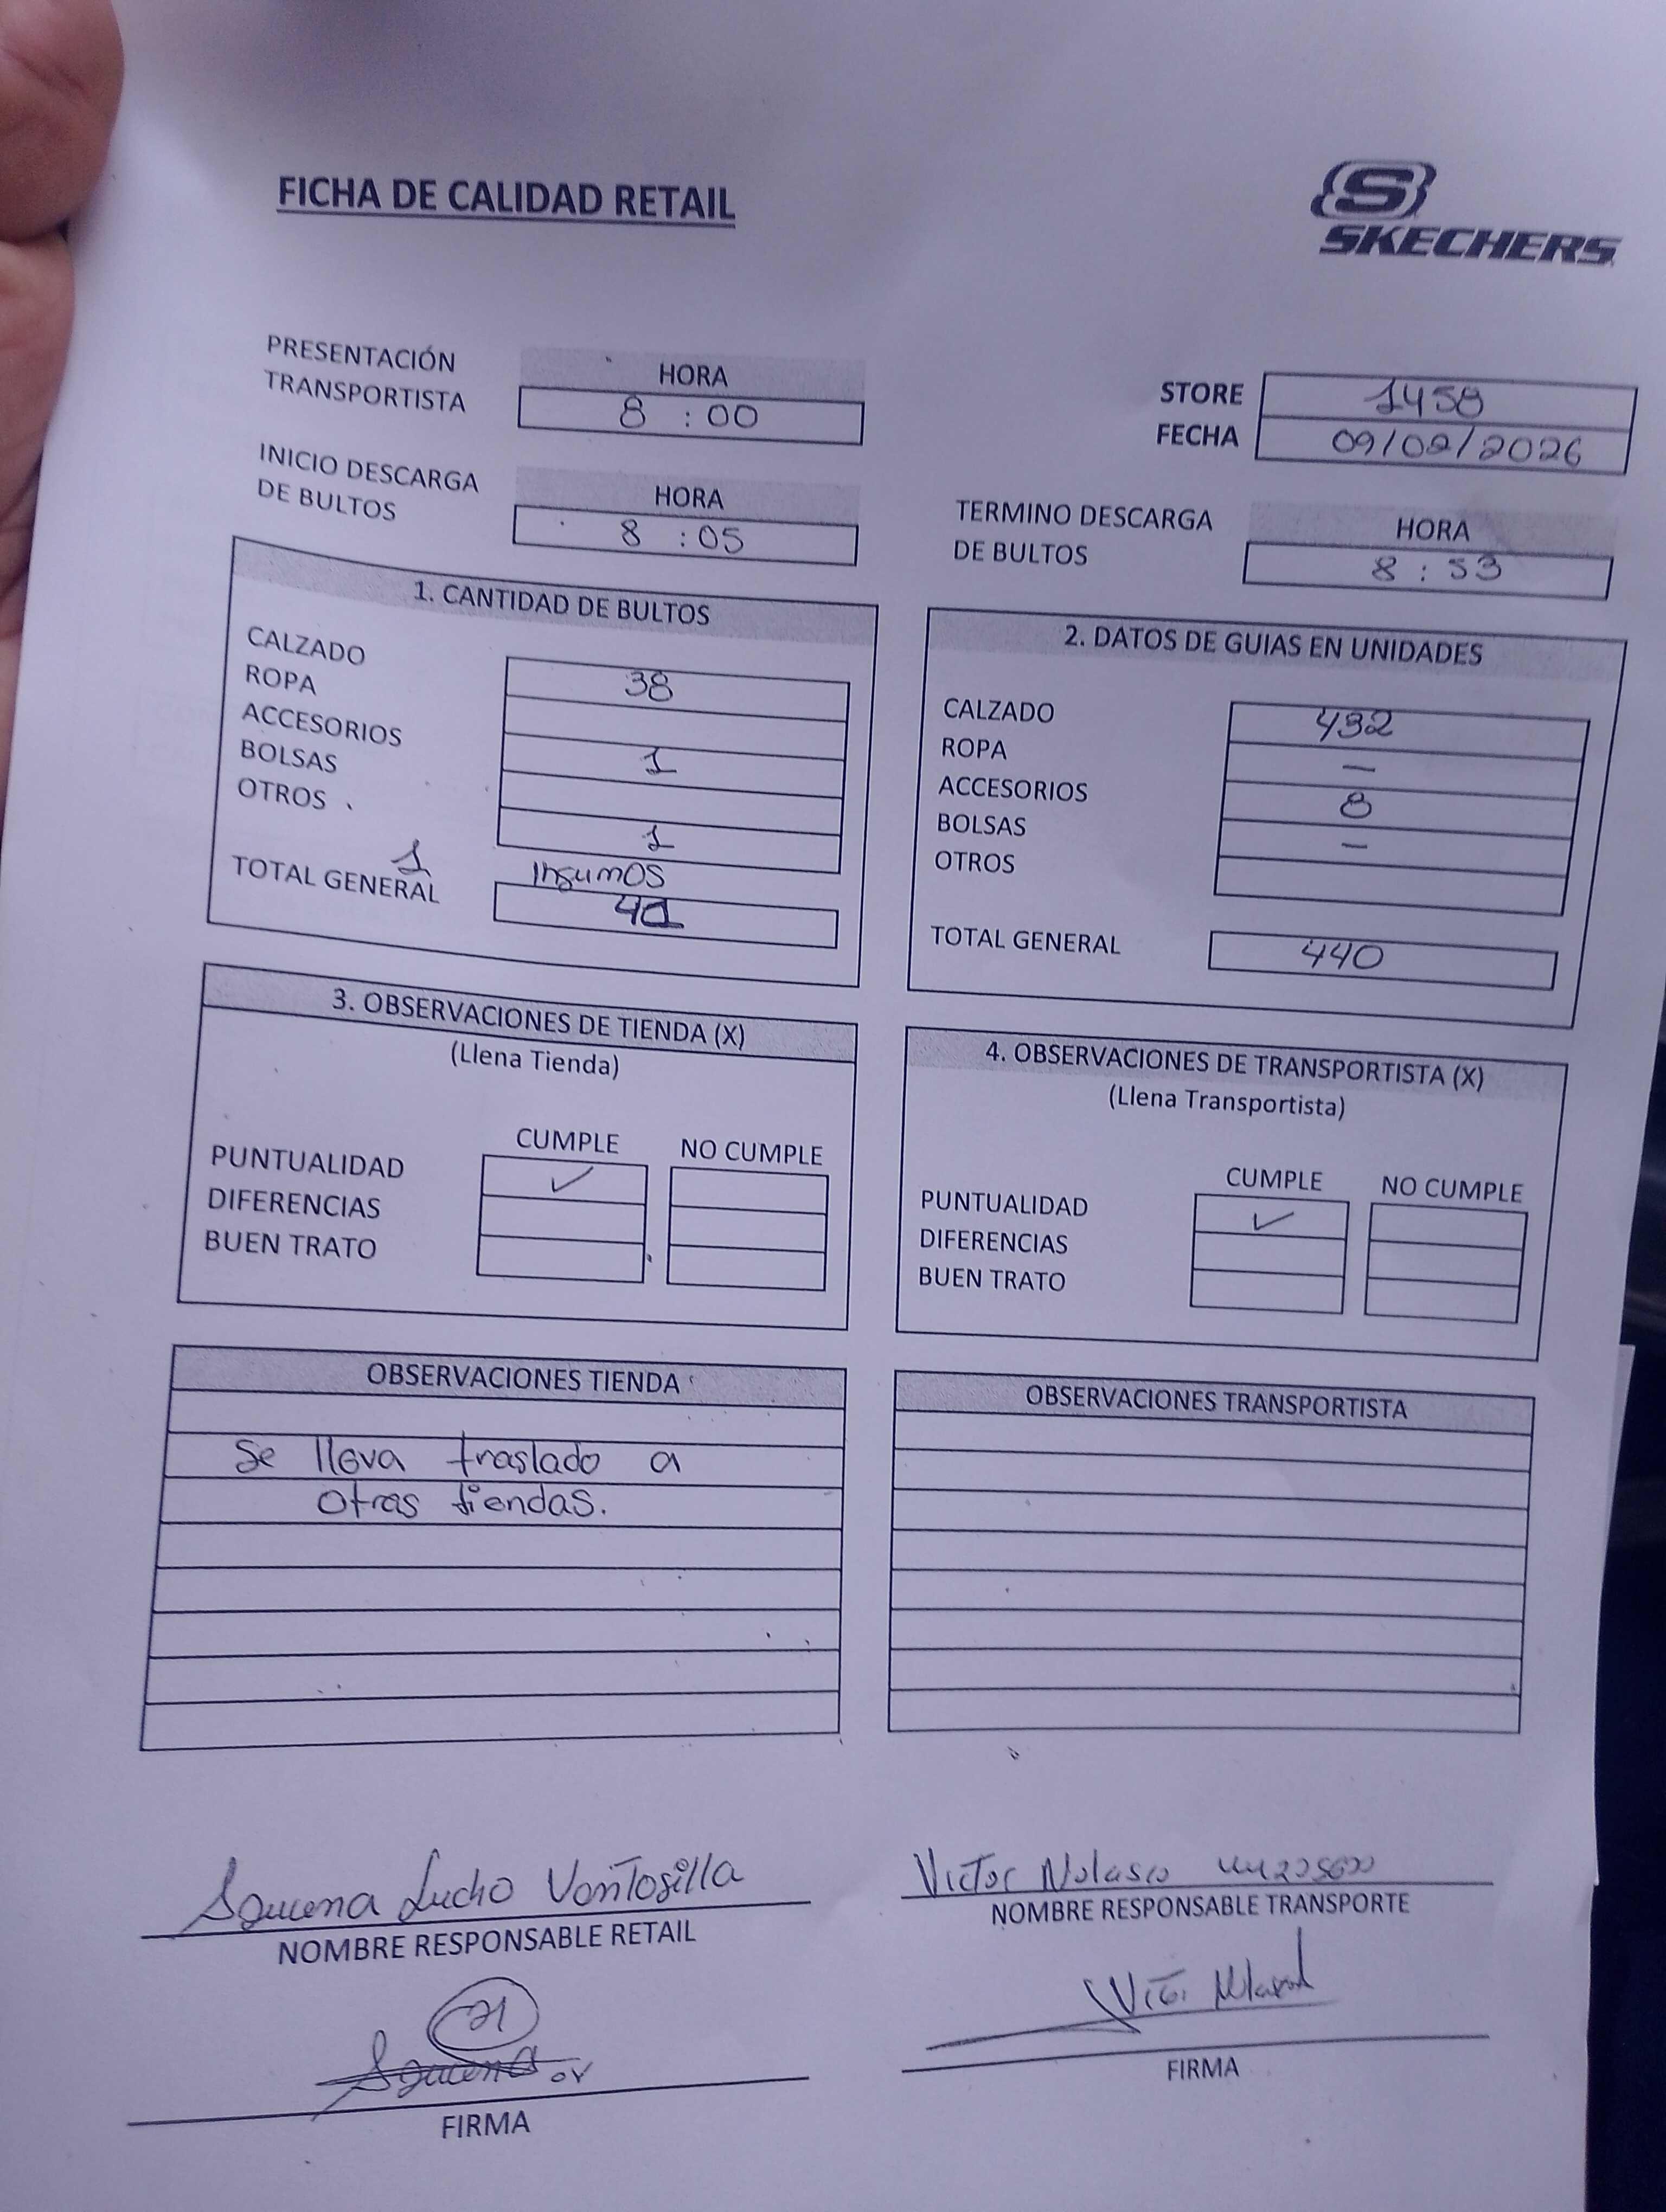 FICHA DE CALIDAD RETAIL
S
SKECHERS
PRESENTACIÓN
TRANSPORTISTA
HORA
8 : 00
STORE 1458
FECHA 09/02/2026
INICIO DESCARGA
DE BULTOS
HORA
8 : 05
TERMINO DESCARGA
DE BULTOS
HORA
8 : 53
1. CANTIDAD DE BULTOS
CALZADO 38
ROPA
ACCESORIOS 1
BOLSAS
OTROS 1
1 Insumos
TOTAL GENERAL 41
2. DATOS DE GUIAS EN UNIDADES
CALZADO 432
ROPA —
ACCESORIOS 8
BOLSAS —
OTROS
TOTAL GENERAL 440
3. OBSERVACIONES DE TIENDA (X)
(Llena Tienda)
CUMPLE NO CUMPLE
PUNTUALIDAD ✓
DIFERENCIAS
BUEN TRATO
4. OBSERVACIONES DE TRANSPORTISTA (X)
(Llena Transportista)
CUMPLE NO CUMPLE
PUNTUALIDAD ✓
DIFERENCIAS
BUEN TRATO
OBSERVACIONES TIENDA
Se lleva traslado a
otras tiendas.
OBSERVACIONES TRANSPORTISTA
Lucho Ventosilla
NOMBRE RESPONSABLE RETAIL
21
FIRMA
Victor Nolasco
NOMBRE RESPONSABLE TRANSPORTE
FIRMA